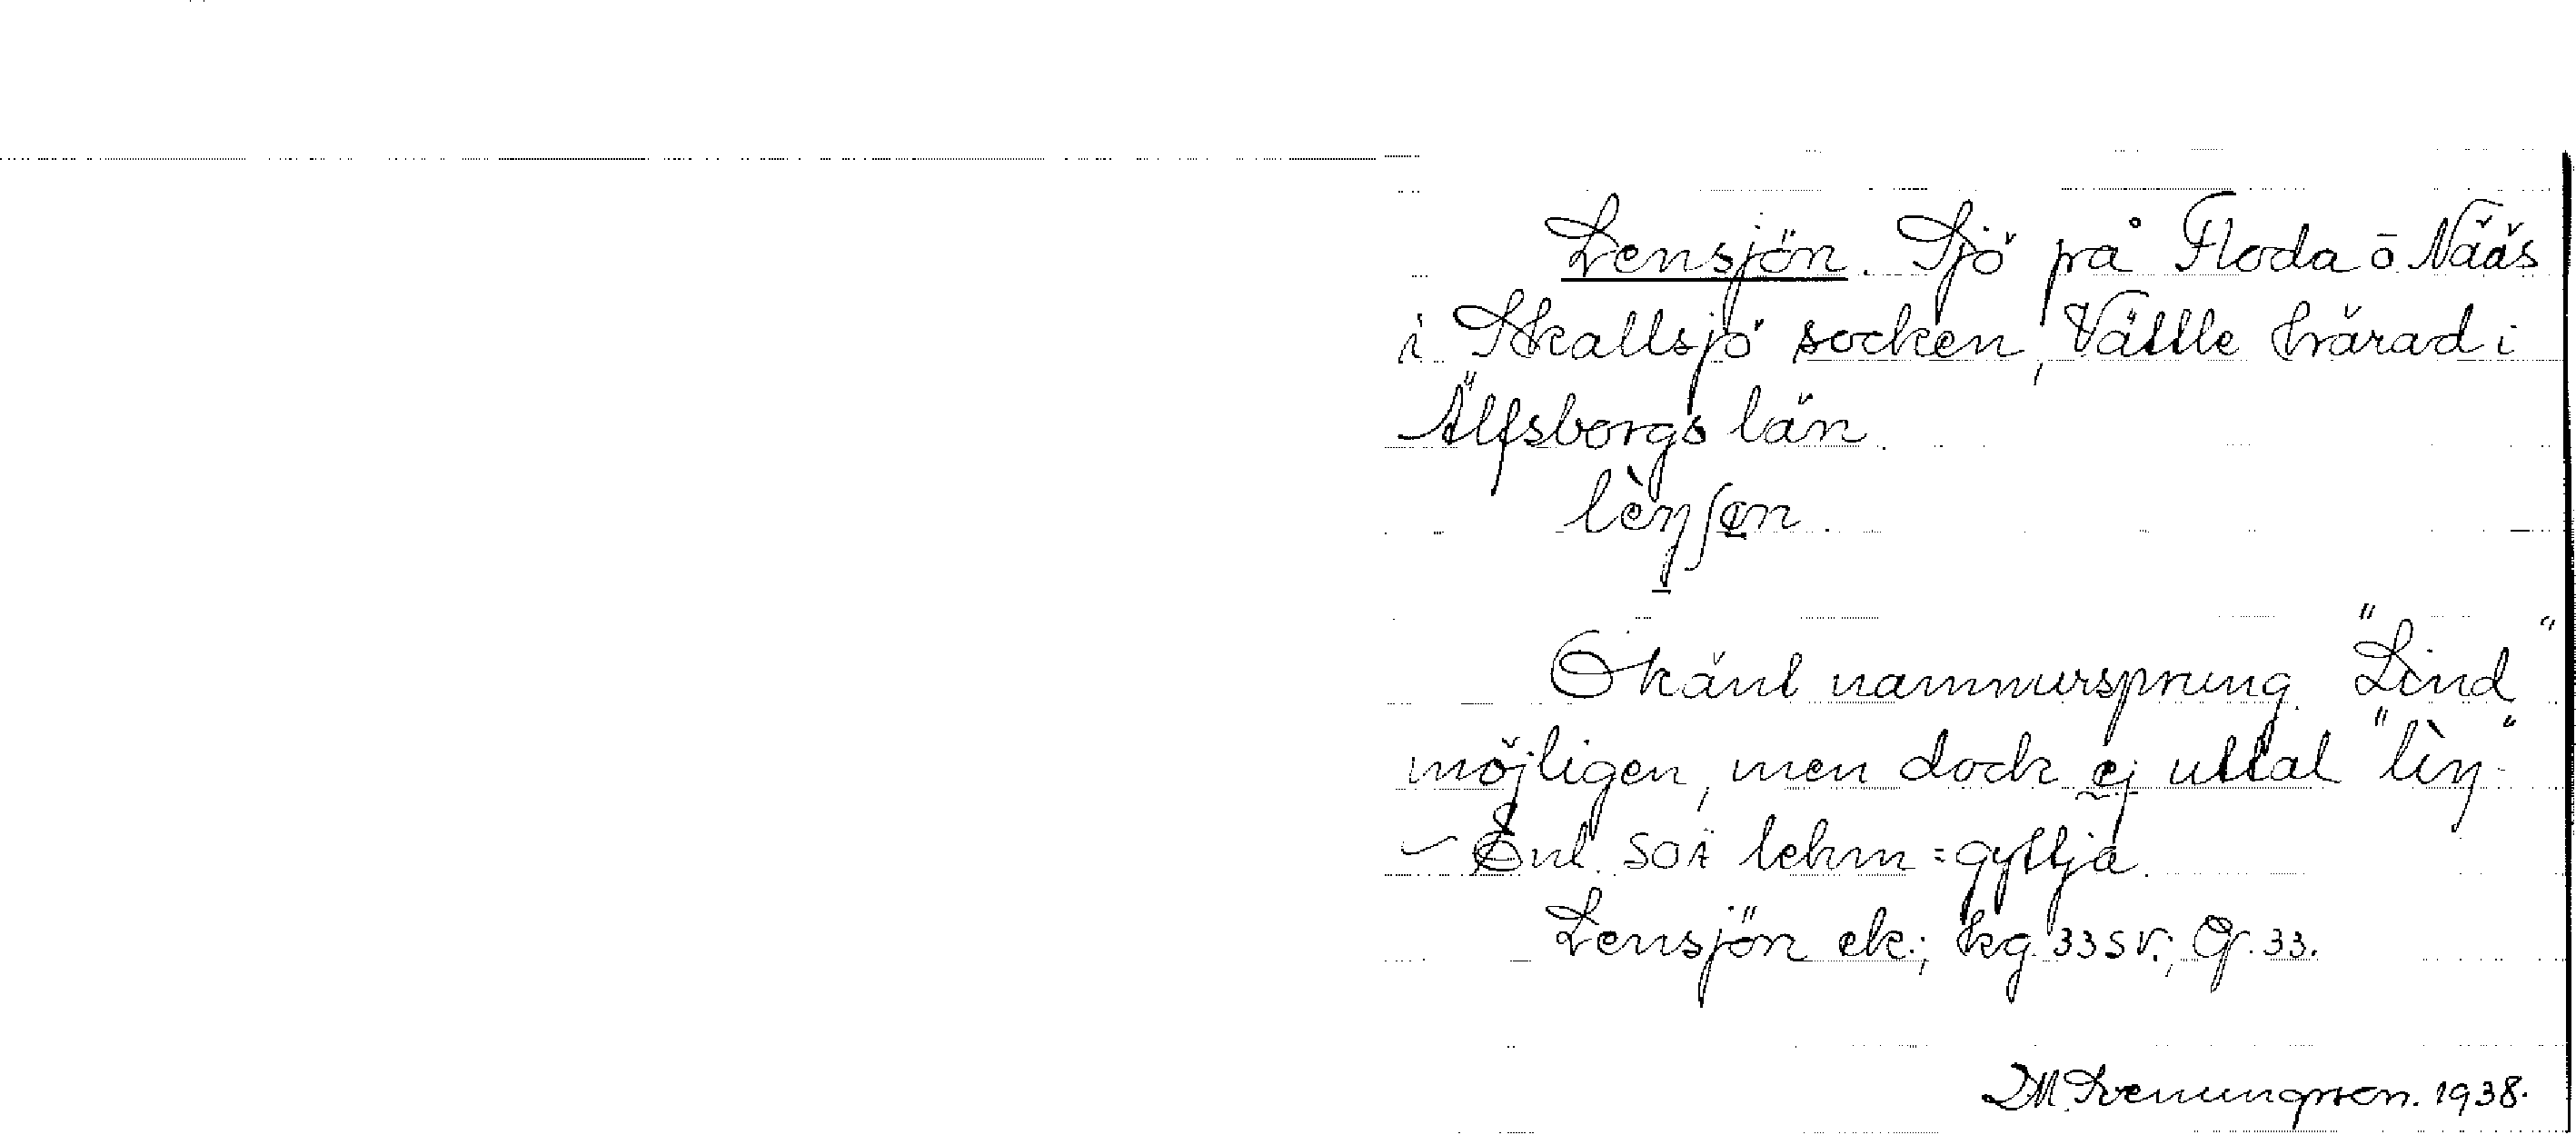 Lensjön. Sjö på Floda o Nääs
i Skallsjö socken, Vättle härad i
Älfsborgs län.
lèŋʃən.
Okänt namnursprung. "Lind"
möjligen, men dock ej uttal "lìŋ-"
– Enl. SOÄ lehm = gyttja.
Lensjön ek.; kg. 33 SV.; G. 33.
1938.